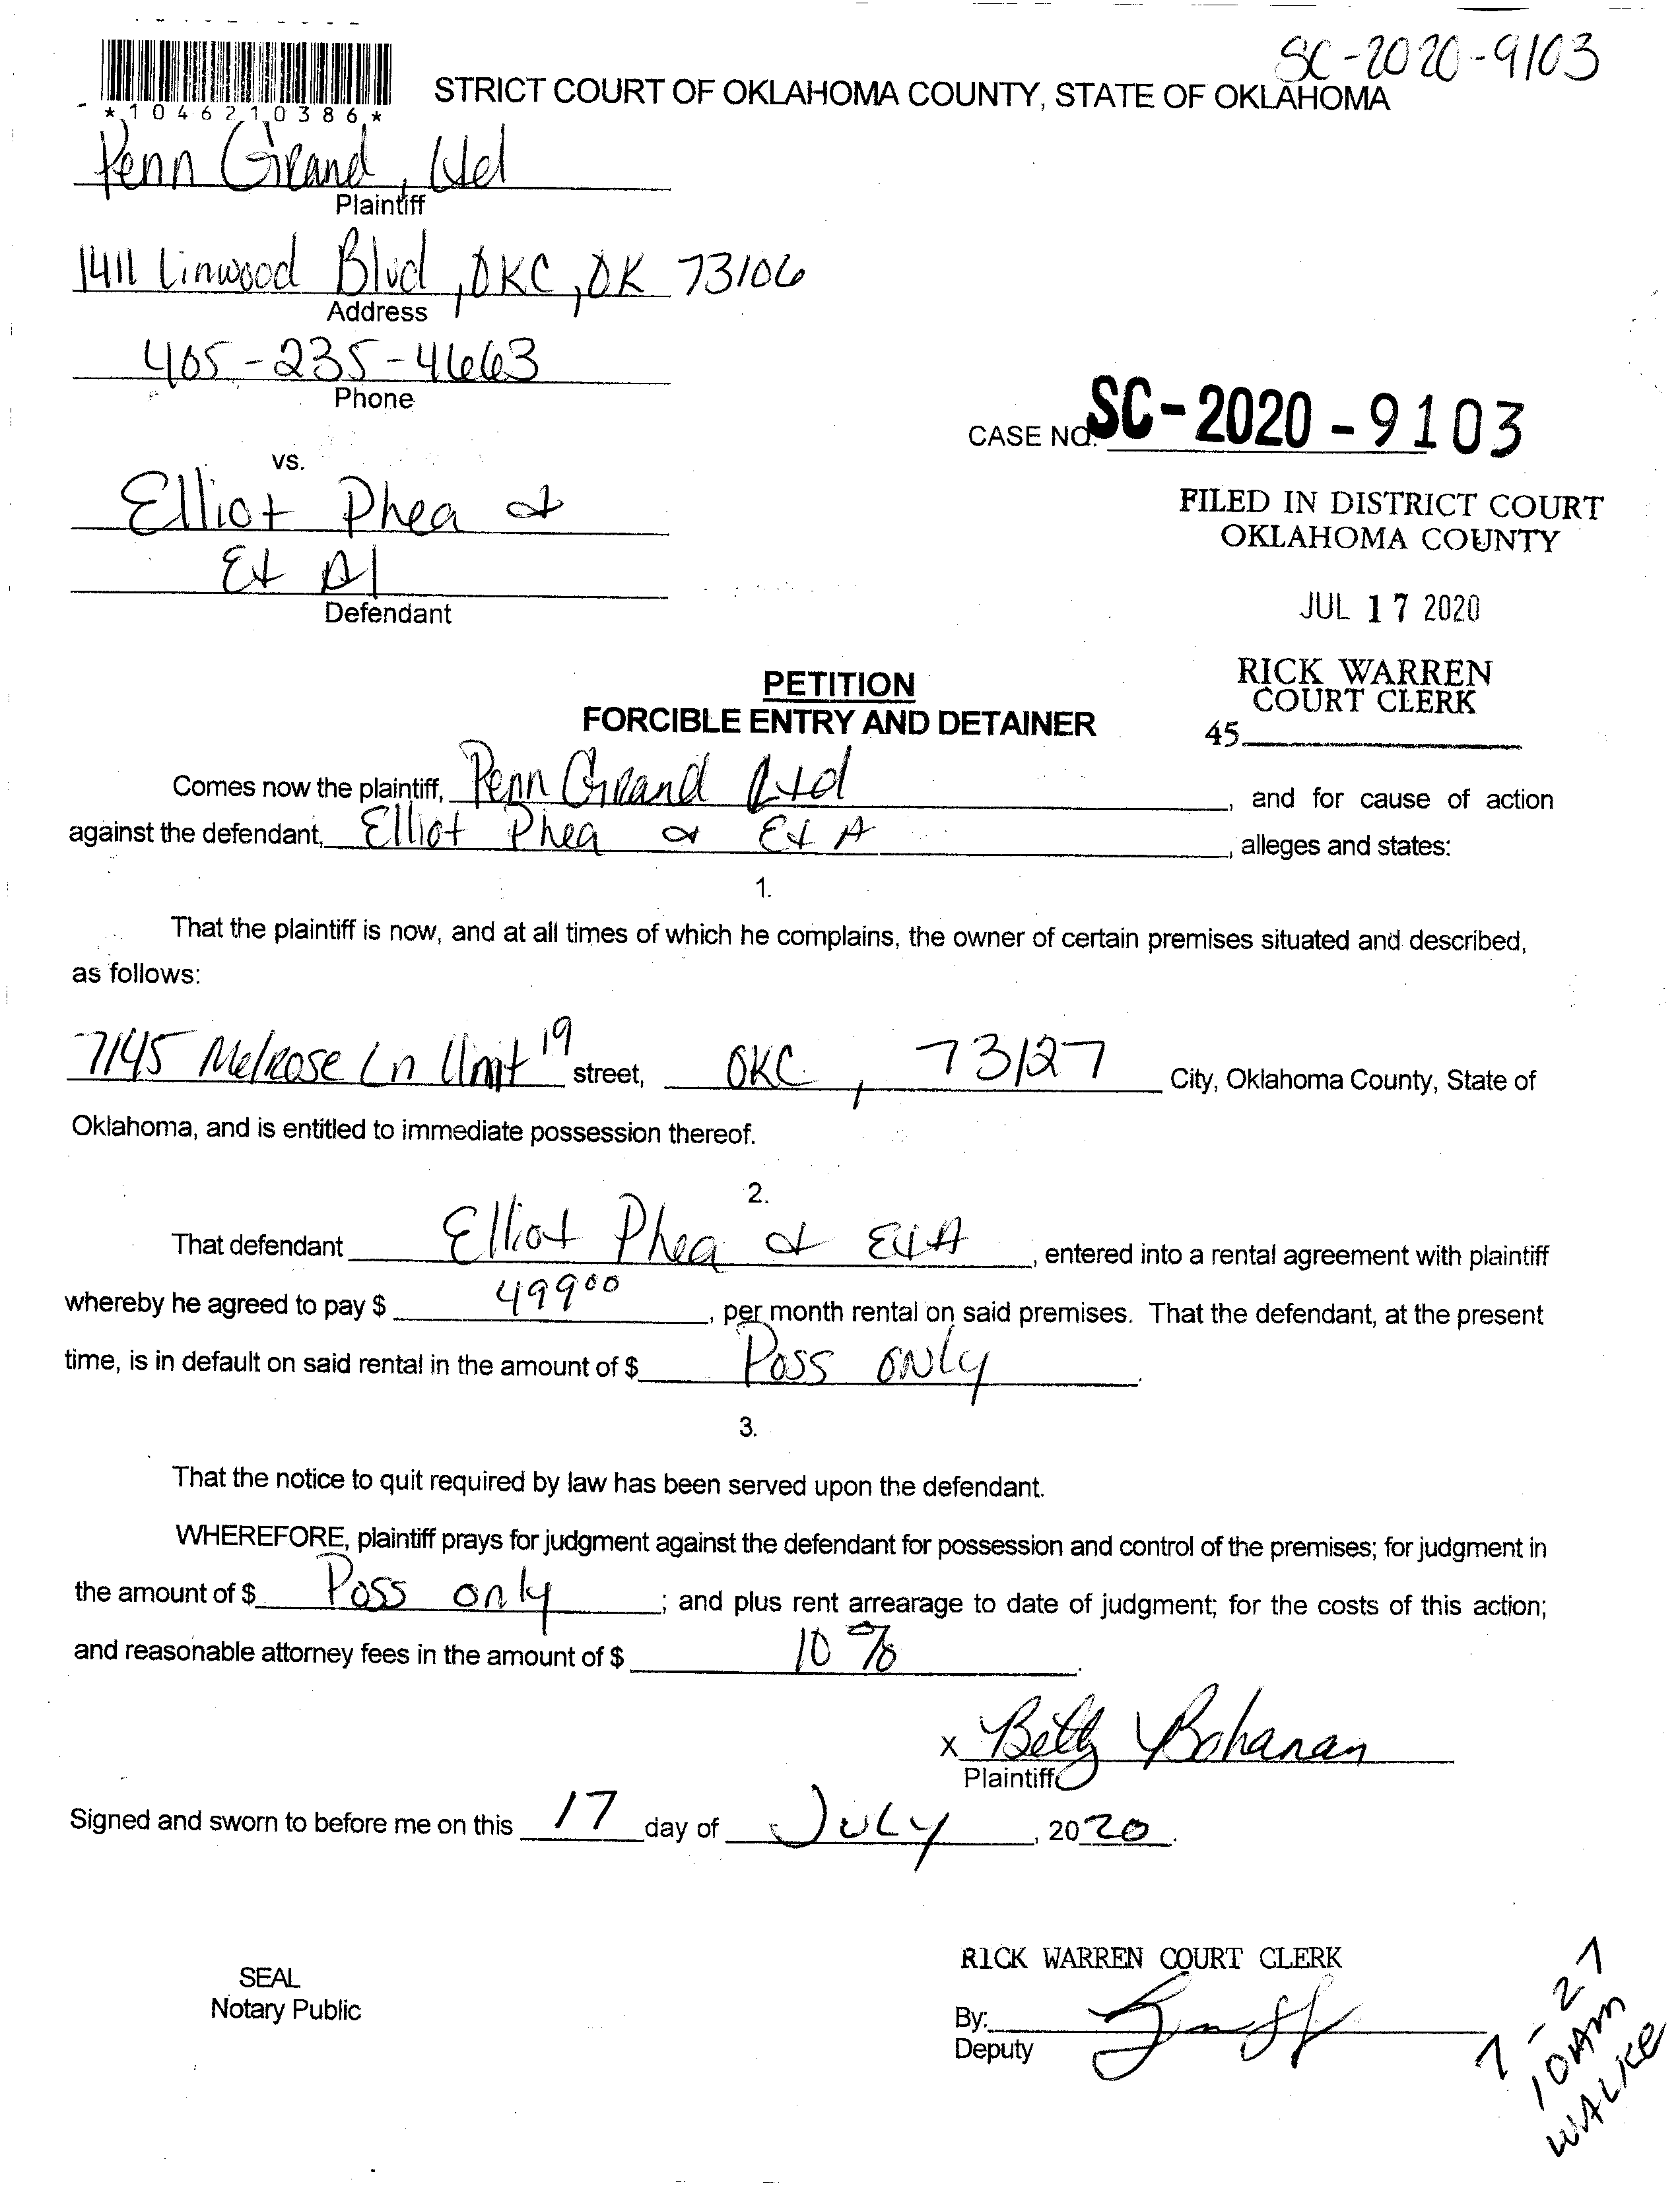 SC-2020-9103
*1046210386*
STRICT COURT OF OKLAHOMA COUNTY, STATE OF OKLAHOMA
Penn Grand, Ltd
Plaintiff
1411 Linwood Blvd, OKC, OK 73106
Address
405-235-4663
Phone
CASE NO. SC-2020-9103
vs.
Elliot Phea &
Et Al
Defendant
FILED IN DISTRICT COURT
OKLAHOMA COUNTY
JUL 17 2020
RICK WARREN
COURT CLERK
45
PETITION
FORCIBLE ENTRY AND DETAINER
Comes now the plaintiff, Penn Grand Ltd, and for cause of action
against the defendant, Elliot Phea & Et A, alleges and states:
1.
That the plaintiff is now, and at all times of which he complains, the owner of certain premises situated and described,
as follows:
7145 Melrose Ln Unit 19 street, OKC, 73127 City, Oklahoma County, State of
Oklahoma, and is entitled to immediate possession thereof.
2.
That defendant Elliot Phea & Et A, entered into a rental agreement with plaintiff
whereby he agreed to pay $ 499 00, per month rental on said premises. That the defendant, at the present
time, is in default on said rental in the amount of $ Poss only.
3.
That the notice to quit required by law has been served upon the defendant.
WHEREFORE, plaintiff prays for judgment against the defendant for possession and control of the premises; for judgment in
the amount of $ Poss only; and plus rent arrearage to date of judgment; for the costs of this action;
and reasonable attorney fees in the amount of $ 10 %.
x Betty Bohanan
Plaintiff
Signed and sworn to before me on this 17 day of July, 2020.
SEAL
Notary Public
RICK WARREN COURT CLERK
By:
Deputy
7-27
10AM
WALKE